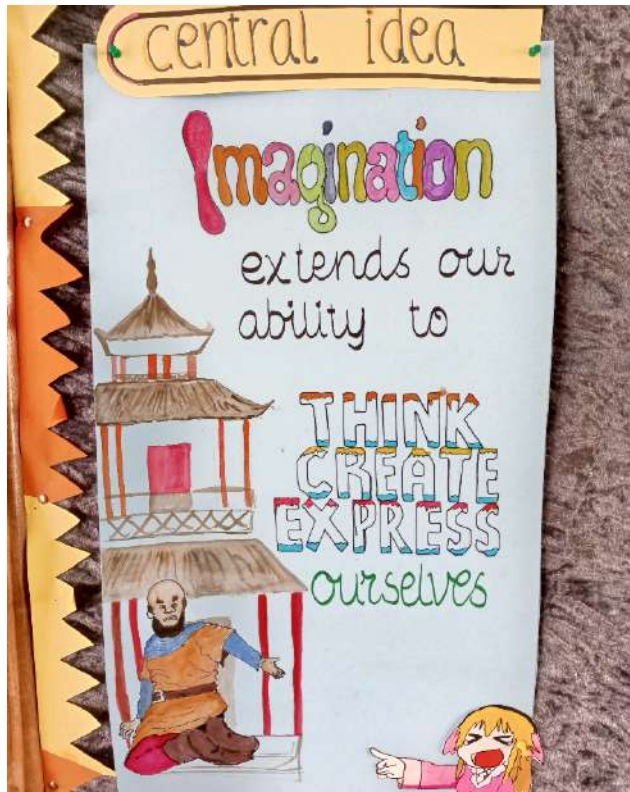 central idea
Imagination
extends our
ability to
THINK
CREATE
EXPRESS
ourselves